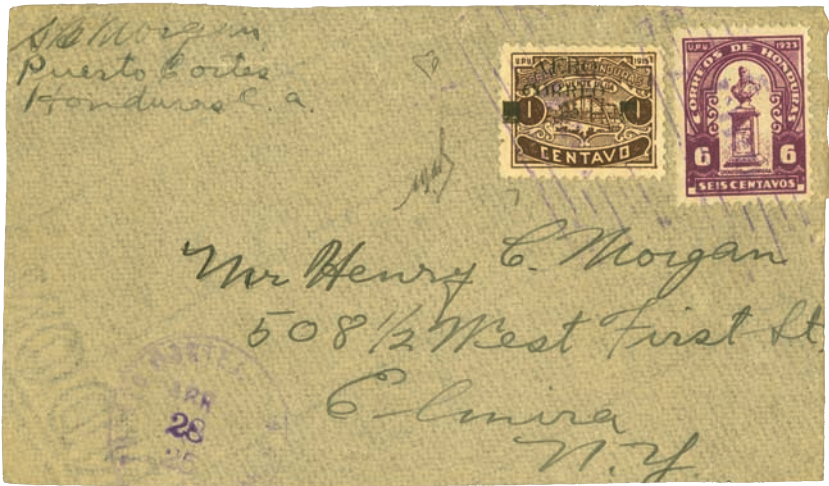 Morgan
Puerto Cortes
Honduras C. a.
U.P.U. 1915
AEREO
CORREO
1 1
CENTAVO
U.P.U. 1923
CORREOS DE HONDURAS
6 6
SEIS CENTAVOS
Mr Henry C. Morgan
508 1/2 West First St.
Elmira
N.Y.
APR
28